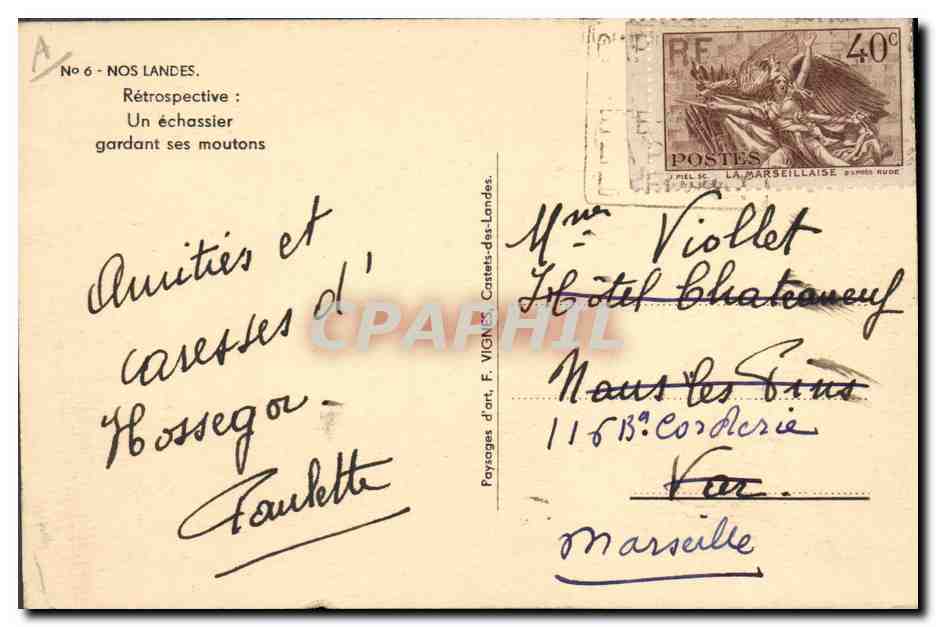 A
No 6 - NOS LANDES.
Rétrospective :
Un échassier
gardant ses moutons
Amitiés et
caresses d'
Hossegor.
Paulette
Paysages d'art, F. VIGNES, Castets-des-Landes.
RF
40c
POSTES
J. PIEL SC. LA MARSEILLAISE D'APRÈS RUDE
Mme Viollet
Hôtel Chateauneuf
Nans les Pins
116 Bd. Corderie
Var.
Marseille
CPAPHIL